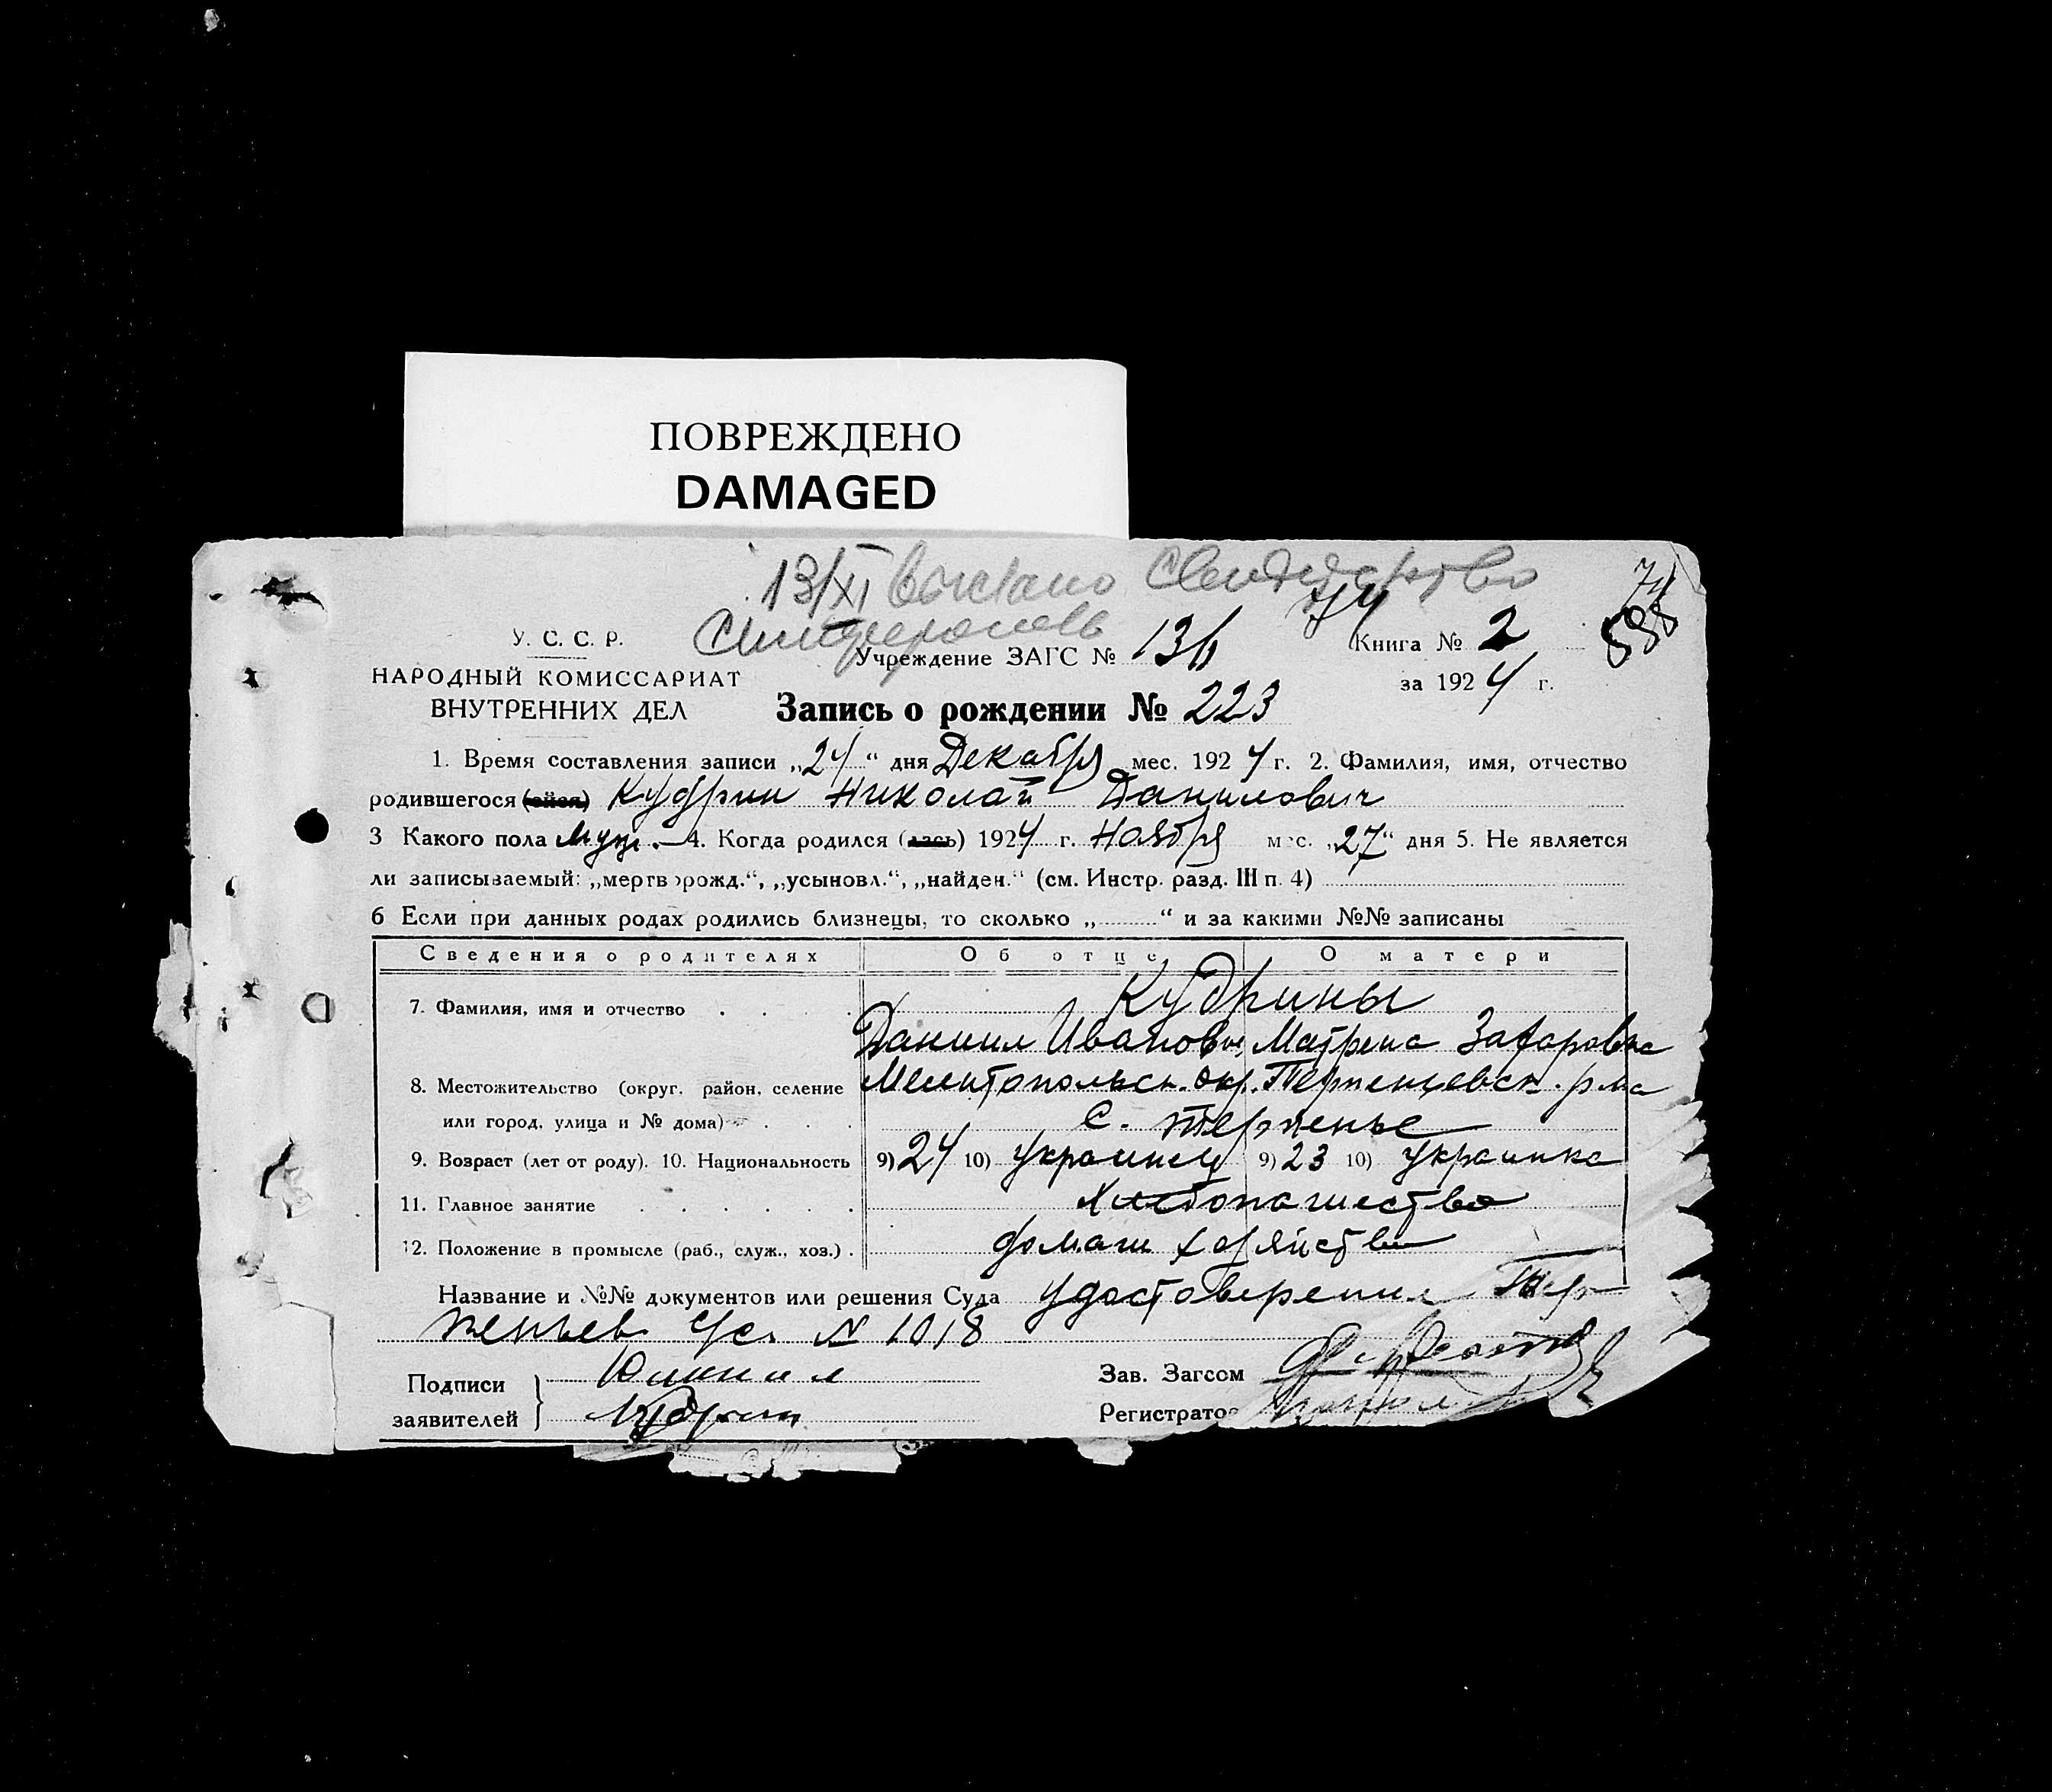 ПОВРЕЖДЕНО
DAMAGED
13/XI Выслано Свидетельство
74
У. С. С. Р.
НАРОДНЫЙ КОМИССАРИАТ
ВНУТРЕННИХ ДЕЛ
Учреждение ЗАГС № 136
74
Книга № 2
588
за 1924 г.
Запись о рождении № 223
1. Время составления записи „24“ дня Декабря мес. 1924 г. 2. Фамилия, имя, отчество
родившегося (ейся) Кудрин Николай Данилович
3 Какого пола муж. — 4. Когда родился (лась) 1924 г. Ноября мес. „27“ дня 5. Не является
ли записываемый: „мертворожд.“, „усыновл.“, „найден.“ (см. Инстр. разд. III п. 4)
6 Если при данных родах родились близнецы, то сколько „ “ и за какими №№ записаны
Сведения о родителях Об отце О матери
Кудрины
7. Фамилия, имя и отчество
Даниил Иванович Матрена Захаровна
8. Местожительство (округ, район, селение Мелитопольск. окр. Терпеньевск. р-на
или город, улица и № дома) с. Терпенье
9. Возраст (лет от роду). 10. Национальность 9) 24 10) украинец 9) 23 10) украинка
11. Главное занятие Хлебопашество
12. Положение в промысле (раб., служ., хоз.) домаш хозяйство
Название и №№ документов или решения Суда удостоверение Тер
пеньев с/с. № 1018
Подписи
заявителей
Даниил
Кудрин
Зав. Загсом
Регистратор